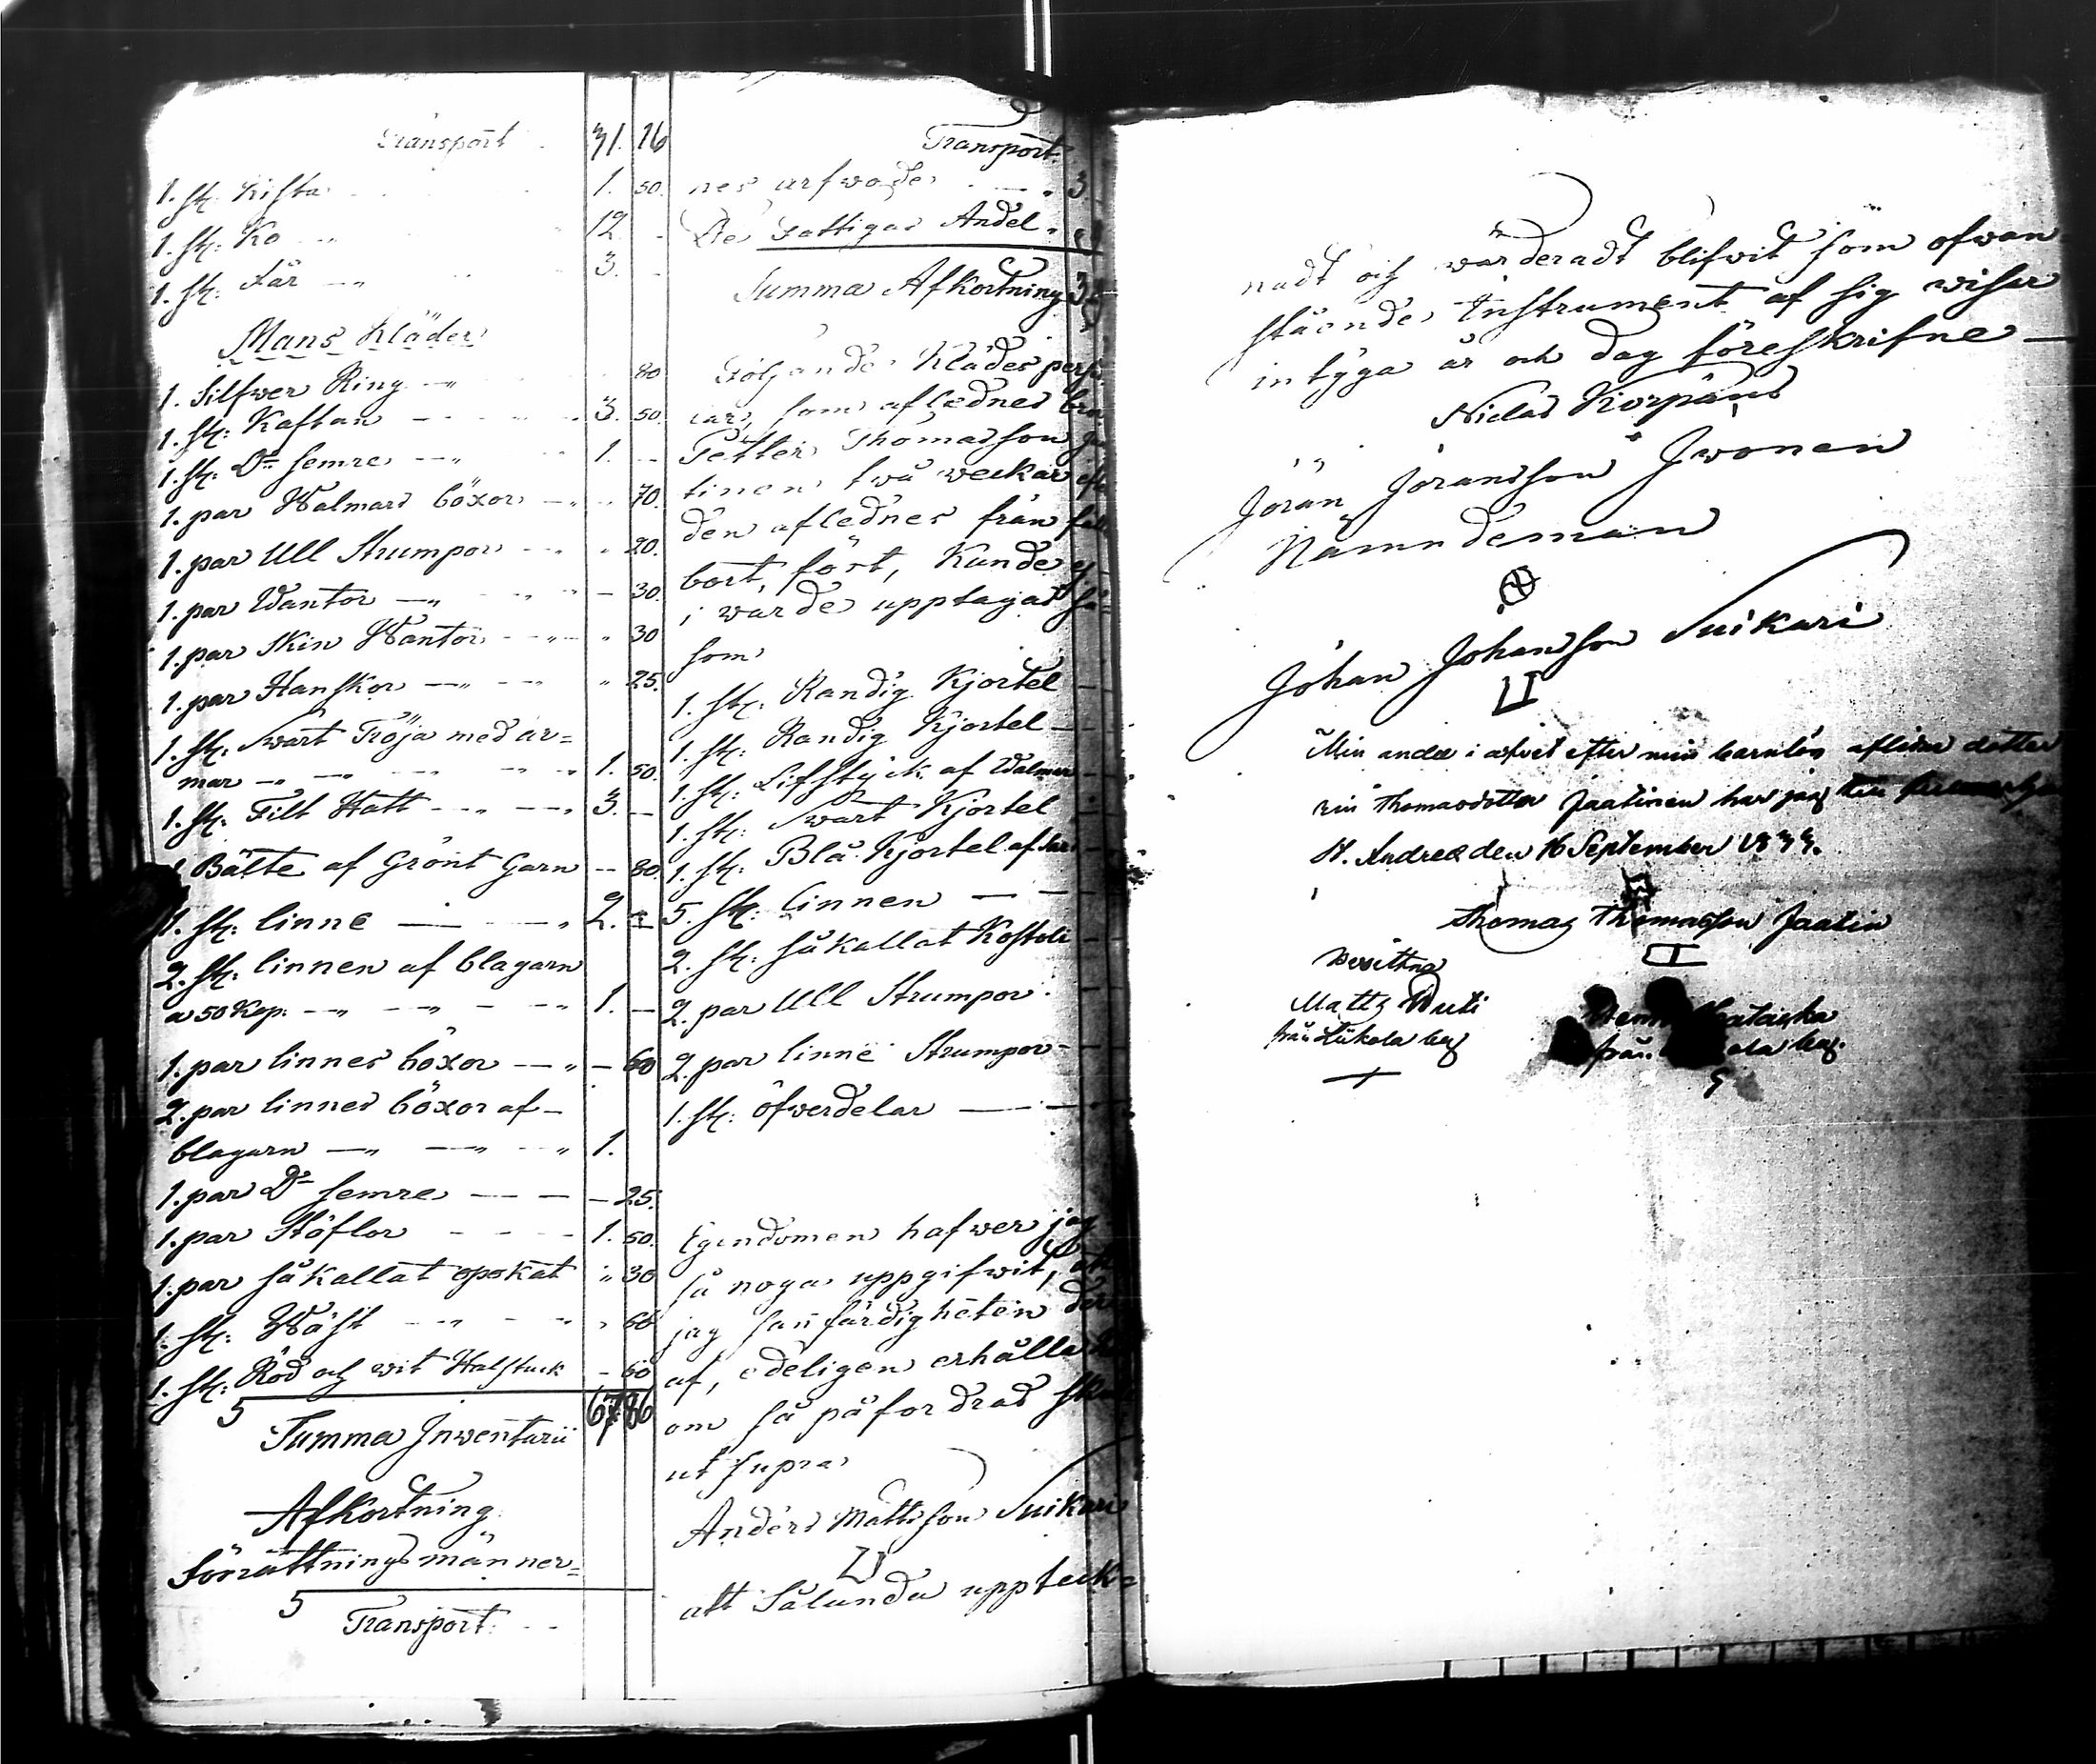 Transport 31. 16
1. st: Kista 1. 50.
1. st: Ko 12. -
1. st: Får 3. -
Mans Kläder
1. Silfwer Ring 80
1. st: Kaftan 3. 50.
1. st: Do semre 1. -
1. par Walmars böxor 70.
1. par Ull Strumpor 20.
1. par Wantor 30.
1. par Skin Wantor 30
1. par Hanskor 25.
1. st: Swart Tröja med är=
mar 1. 50.
1. st: Filt Hatt 3. -
1 Bälte af Grönt Garn 80.
1. st: linne 2. -
2. st: linnen af blagarn
a 50 Kop. 1. -
1. par linnes böxor 60
2. par linnes böxor af
blagarn 1.
1. par Do semre 25.
1. par Stöflor 1. 50.
1. par så kallat opokat 30
1. st: Wäst 60
1. st: Röd och wit Halstuck 60
Summa Inwentarii 67. 86
Afkortning
Förrättningsmänner=
Transport.
Transport.
nes arfwode 3.
De Fattigas Andel
Summa Afkortning
Följande Kläder
som aflednes
Petter Thomasson
tinen twå weckar
den aflednes från
bort fört, Kunde ej
i warde upptagas så
som
1. st: Randig Kjortel
1. st: Randig Kjortel
1. st: Lifstyck af Walmar
1. st: Swart Kjortel
1. st: Blå Kjortel af
5. st: linnen
2. st: så kallat Kostoli
2. par Ull Strumpor
2. par linne Strumpor
1. st: öfwerdelar
Egendomen hafwer jag
så noga uppgifwit, att
jag sanfärdigheten der
af, edeligen erhålla
om så påfordras
ut supra
Anders Mattsson Suikari
att Sålunda uppteck=
nadt och wärderadt blifwit som ofwan
stående Instrument af sig wisar
intyga år och dag föreskrifne
Niclas Korpäus
Jöran Joransson Iwonen
Nämndeman
Johan Johansson Suikari
Min andel i arfvet efter min barnlös aflidne dotter
Thomasdotter Jaatinen har jag
St. Andreæ den 16 September 1844.
Thomas Thomasson Jaatin
Wittna
Matts
från Liikola by
från by.